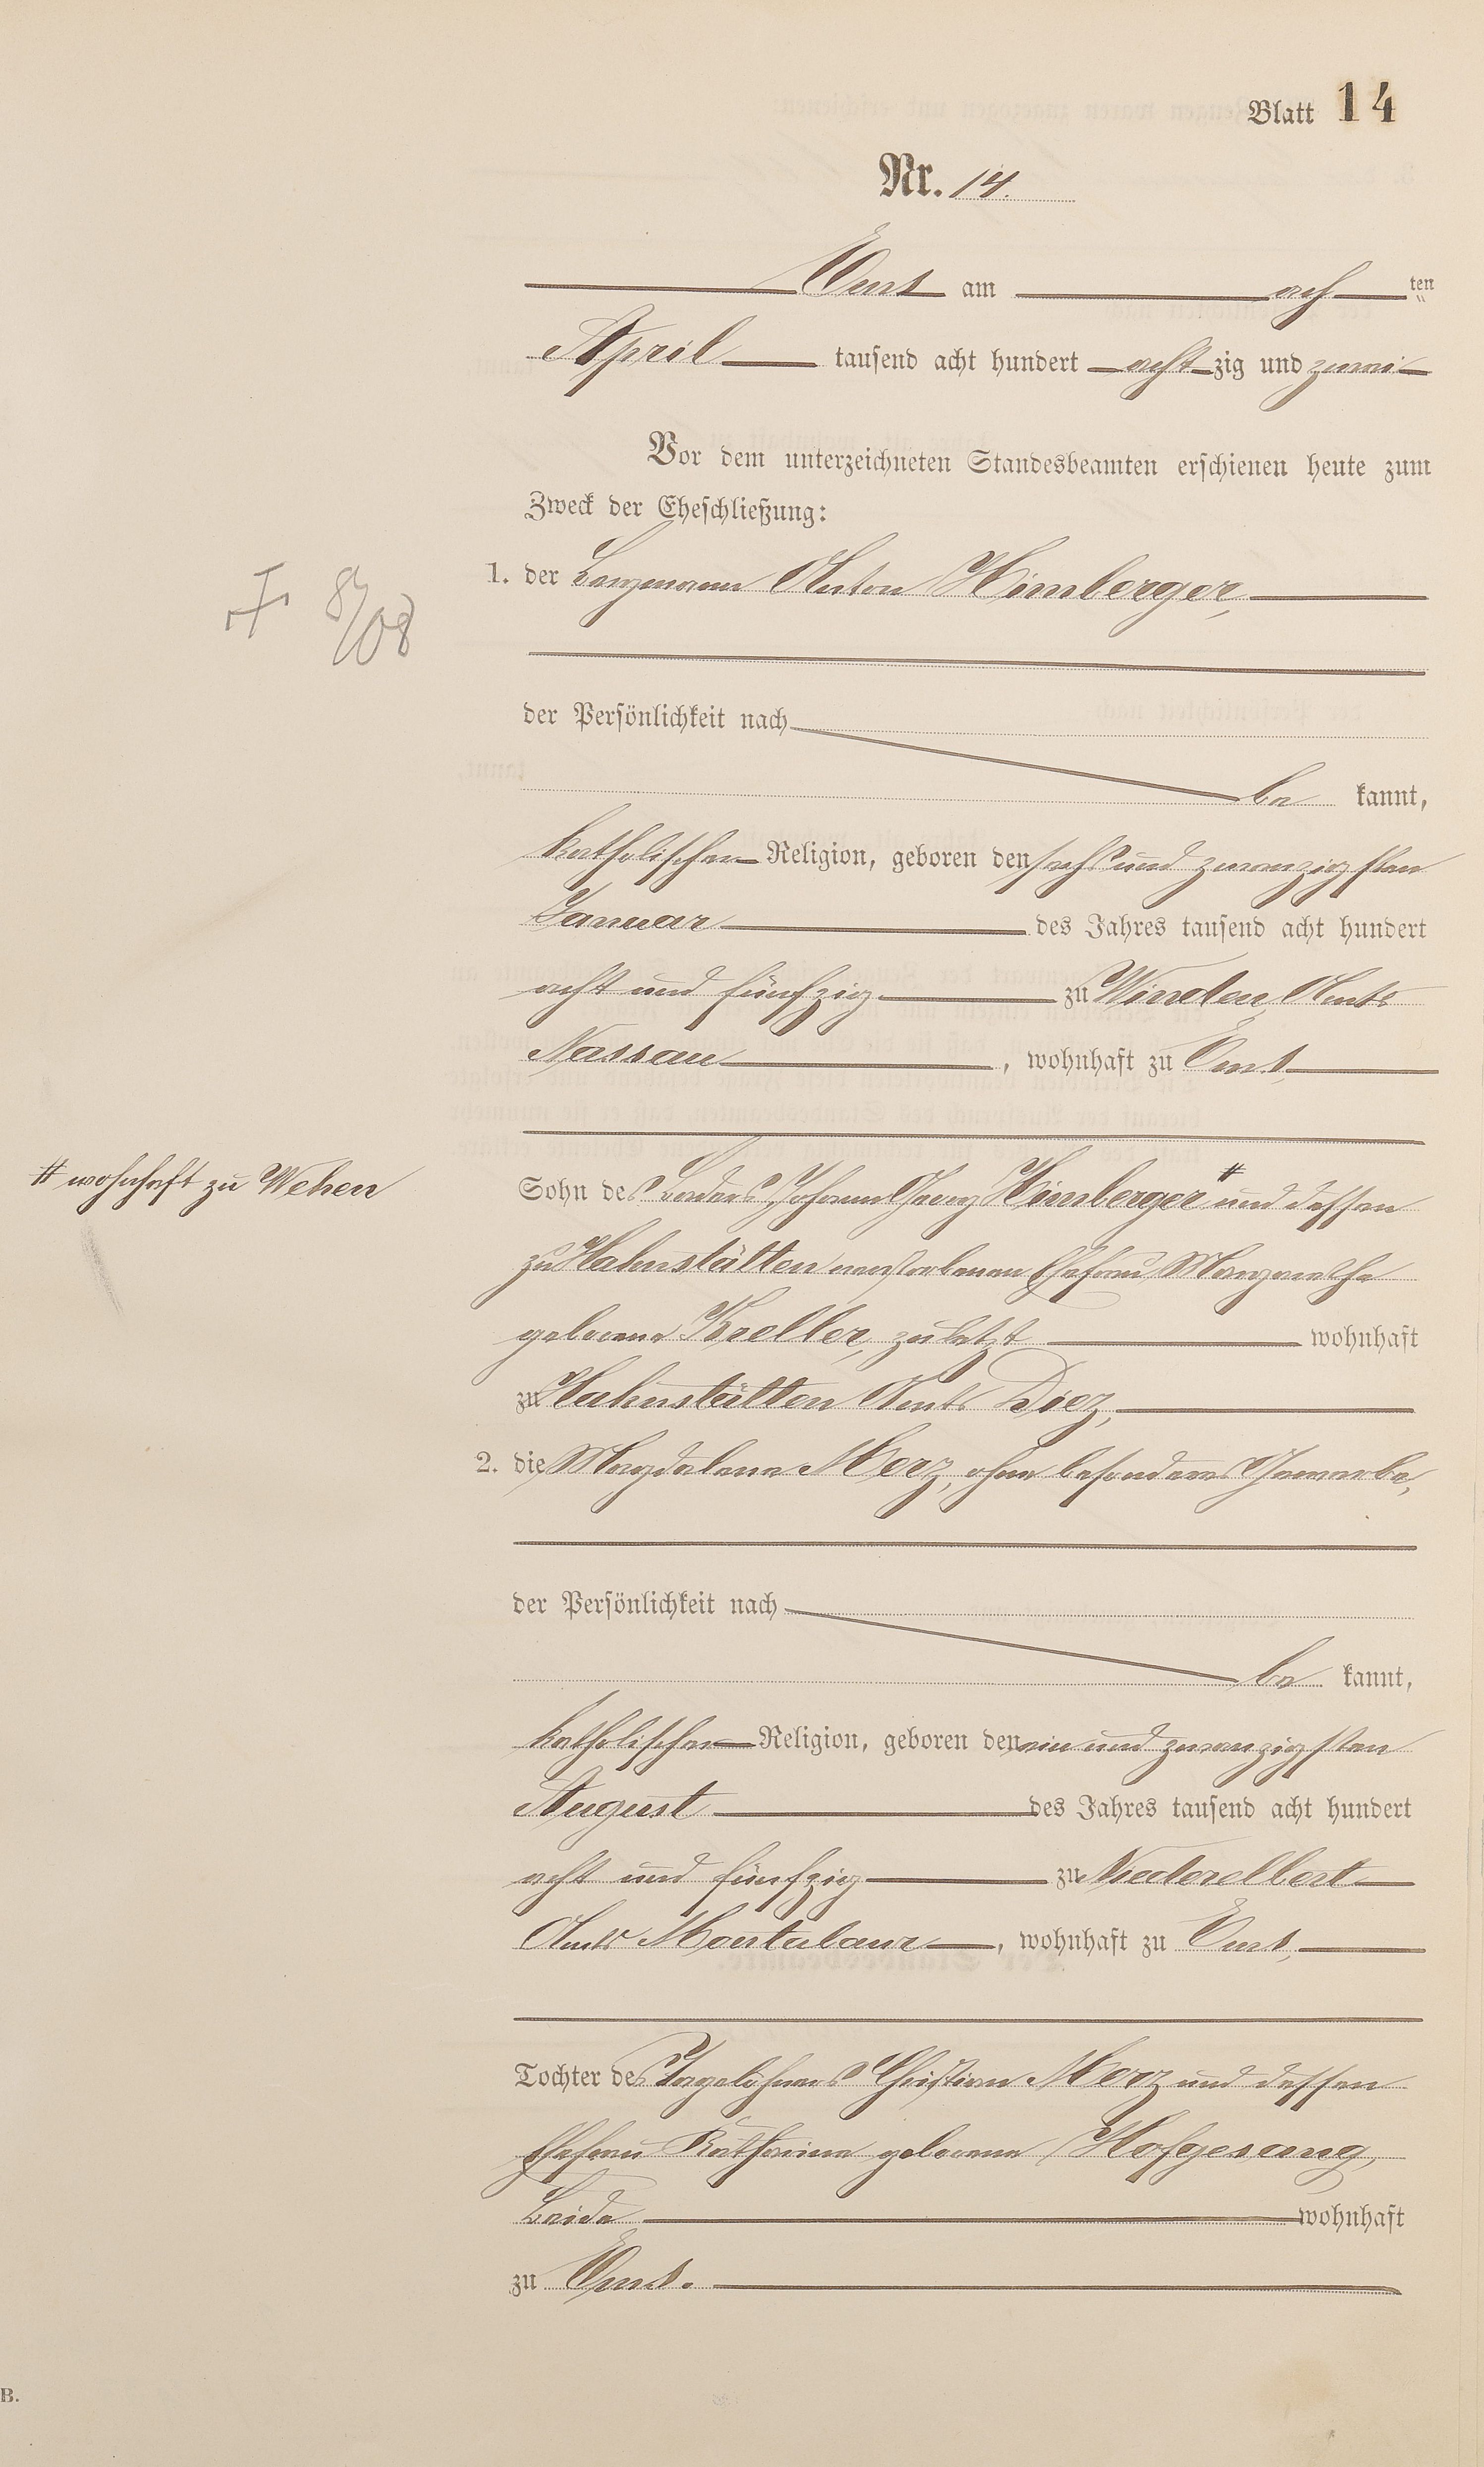 Blatt 14
Nr. 14.
Ems am ach ten
April tausend acht hundert acht zig und zwei
Vor dem unterzeichneten Standesbeamten erschienen heute zum
Zweck der Eheschließung:
1. der Bergmann Anton Himberger,
der Persönlichkeit nach
be kannt,
katholischer Religion, geboren den sechs und zwanzigsten
Januar des Jahres tausend acht hundert
acht und fünfzig zu Winden, Amts
Nassau, wohnhaft zu Ems,
# wohnhaft zu Wehen
Sohn des Johann Georg Himberger # und dessen
zu Hahnstätten verstorbenen Ehefrau Margarethe
geborene Kreller, zuletzt wohnhaft
zu Hahnstätten Amts Diez,
2. die Magdalena Merz, ohne besonderes Gewerbe,
der Persönlichkeit nach
be kannt,
katholischer Religion, geboren den ein und zwanzigsten
August des Jahres tausend acht hundert
acht und fünfzig zu Niederelbert
Amts Montabaur, wohnhaft zu Ems,
Tochter des Tagelöhners Christian Merz und dessen
Ehefrau Katharina geborene Hofgesang,
Beide wohnhaft
zu Ems.
B.